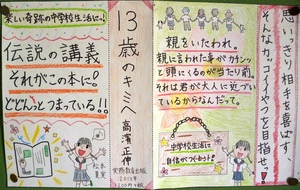 思いっきり相手を喜ばす
そんなカッコイーやつを目指せ!
親をいたわれ。
親に言われた事がカチンッ
と頭にくるのが当たり前。
それは君が大人に近づい
ているからなんだって。
中学校生活に
自信がつくホン!
13歳のキミへ
高濱正伸
実務教育出版
2011年
1200円+税
楽しい奇跡の中学校生活に!
伝説の講義
それがこの本に!
どどんっとつまっている!!
松本